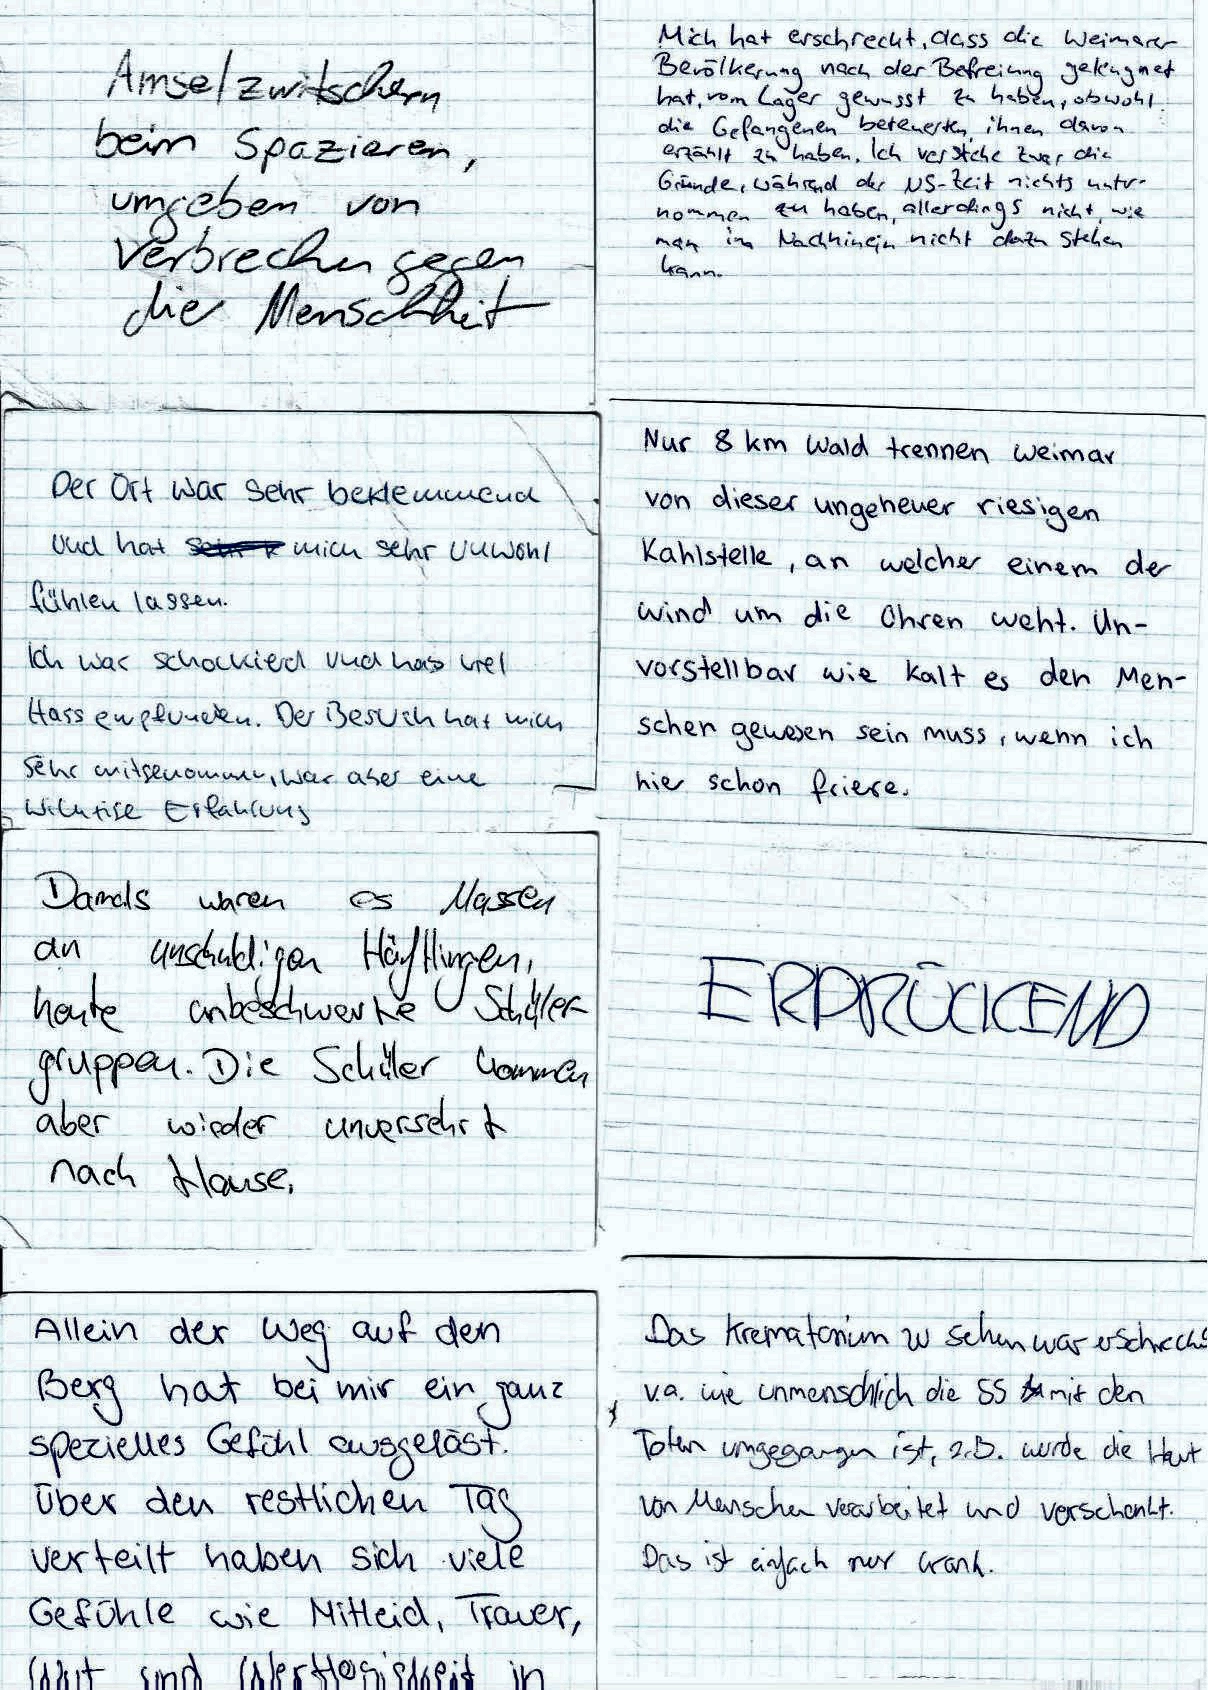 Amselzwitschern
beim Spazieren,
umgeben von
Verbrechen gegen
die Menschheit
Mich hat erschreckt, dass die Weimarer
Bevölkerung nach der Befreiung geleugnet
hat, vom Lager gewusst zu haben, obwohl
die Gefangenen beteuerten, ihnen davon
erzählt zu haben. Ich verstehe zwar die
Gründe, während der NS-Zeit nichts unter-
nommen zu haben, allerdings nicht, wie
man im Nachhinein nicht dazu stehen
kann.
Der Ort war sehr beklemmend
und hat mich sehr unwohl
fühlen lassen.
Ich war schockiert und hab viel
Hass empfunden. Der Besuch hat mich
sehr mitgenommen, war aber eine
wichtige Erfahrung
Nur 8 km Wald trennen Weimar
von dieser ungeheuer riesigen
Kahlstelle, an welcher einem der
Wind um die Ohren weht. Un-
vorstellbar wie kalt es den Men-
schen gewesen sein muss, wenn ich
hier schon friere.
Damals waren es Massen
an unschuldigen Häftlingen,
heute unbeschwerte Schüler-
gruppen. Die Schüler kommen
aber wieder unversehrt
nach Hause.
ERDRÜCKEND
Allein der Weg auf den
Berg hat bei mir ein ganz
spezielles Gefühl ausgelöst.
Über den restlichen Tag
verteilt haben sich viele
Gefühle wie Mitleid, Trauer,
Wut und Wertlosigkeit in
Das Krematorium zu sehen war
v.a. wie unmenschlich die SS mit den
Toten umgegangen ist, z.B. wurde die Haut
von Menschen verarbeitet und verschenkt.
Das ist einfach nur krank.